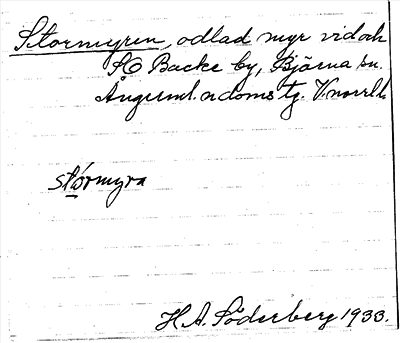 Stormyren, odlad myr vid och
SO Backe by, Bjärna sn.
Ångerml. n doms tg. V.norrl.l.
stórmyra
H. A. Söderberg 1933.